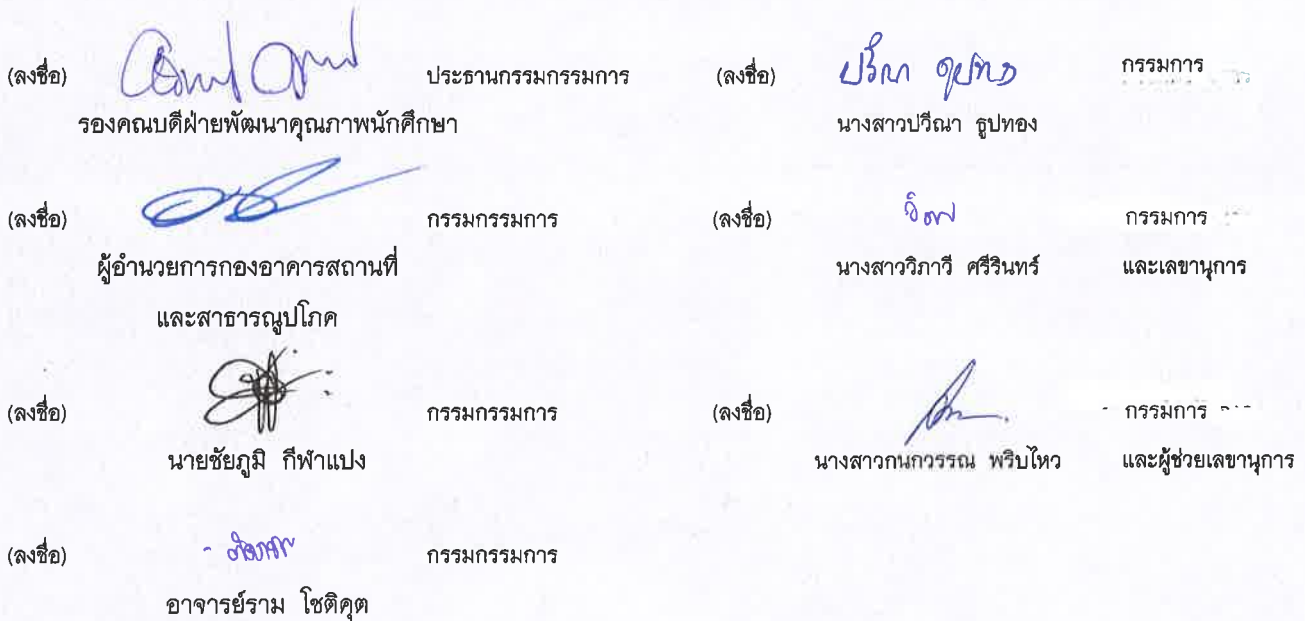 (ลงชื่อ) ประธานกรรมกรรมการ
รองคณบดีฝ่ายพัฒนาคุณภาพนักศึกษา
(ลงชื่อ) กรรมกรรมการ
ผู้อำนวยการกองอาคารสถานที่
และสาธารณูปโภค
(ลงชื่อ) กรรมกรรมการ
นายชัยภูมิ กีฬาแปง
(ลงชื่อ) กรรมกรรมการ
อาจารย์ราม โชติคุต
(ลงชื่อ) ปวีณา ธูปทอง กรรมการ
นางสาวปวีณา ธูปทอง
(ลงชื่อ) กรรมการ
นางสาววิภาวี ศรีรินทร์ และเลขานุการ
(ลงชื่อ) กรรมการ
นางสาวกนกวรรณ พริบไหว และผู้ช่วยเลขานุการ